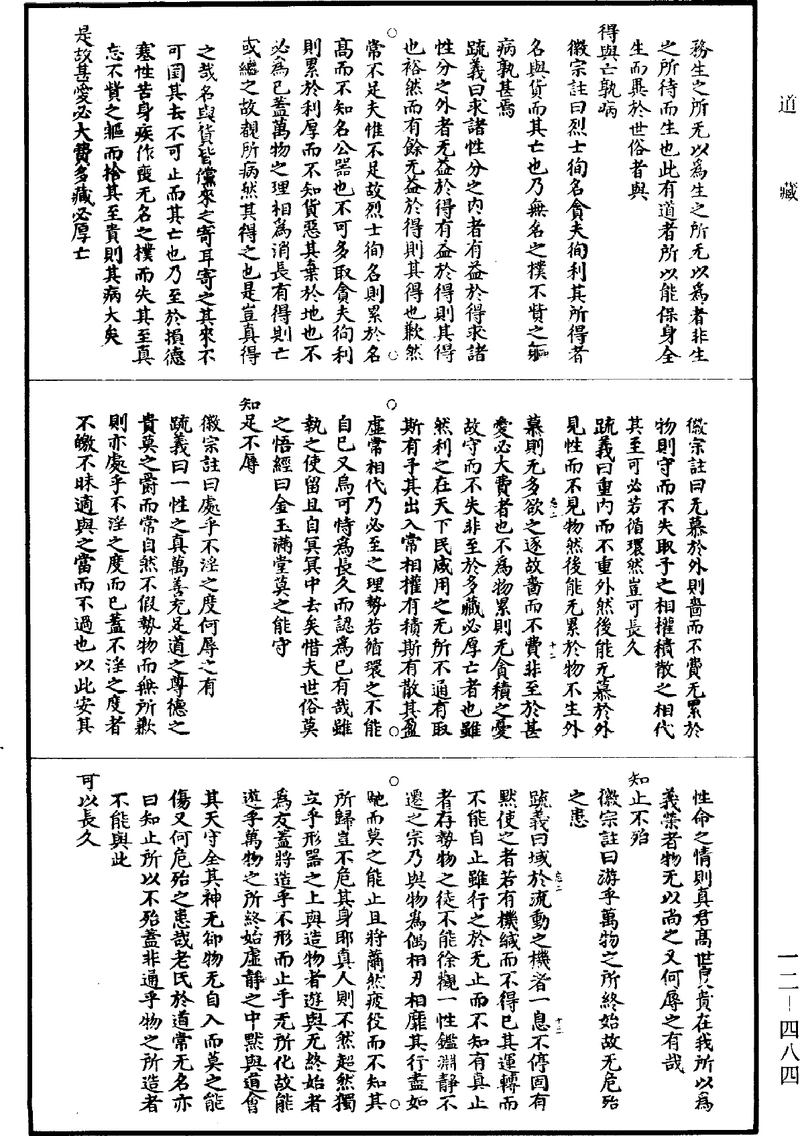 道藏
務生之所无以為生之所无以為者非生
之所待而生也此有道者所以能保身全
生而異於世俗者與
得與亡孰病
徽宗註曰烈士徇名貪夫徇利其所得者
名與貨而其亡也乃無名之樸不貲之軀
病孰甚焉
疏義曰求諸性分之内者有益於得求諸
性分之外者无益於得有益於得則其得
也裕然而有餘无益於得則其得也歉然
常不足夫惟不足故烈士徇名則累於名
髙而不知名公器也不可多取貪夫徇利
則累於利厚而不知貨惡其棄於地也不
必為已蓋萬物之理相為消長有得則亡
或繼之故觀所病然其得之也是豈真得
之哉名與貨皆儻來之寄耳寄之其來不
可圉其去不可止而其亡也乃至於損德
塞性苦身疾作喪无名之樸而失其至真
忘不貲之軀而捨其至貴則其病大矣
是故甚愛必大費多藏必厚亡
徽宗註曰无慕於外則嗇而不費无累於
物則守而不失取予之相權積散之相代
其至可必若循環然豈可長久
疏義曰重内而不重外然後能无慕於外
見性而不見物然後能无累於物不生外
慕則无多欲之逐故嗇而不費非至於甚
愛必大費者也不為物累則无貪積之憂
故守而不失非至於多藏必厚亡者也雖
然利之在天下民咸用之无所不通有取
斯有予其出入常相權有積斯有散其盈
虚常相代乃必至之理勢若循環之不能
自已又烏可恃為長久而認為已有哉雖
執之使留且自冥冥中去矣惜夫世俗莫
之悟經曰金玉滿堂莫之能守
知足不辱
徽宗註曰處乎不淫之度何辱之有
疏義曰一性之真萬善充足道之尊德之
貴莫之爵而常自然不假勢物而無所歉
則亦處乎不淫之度而已蓋不淫之度者
不皦不昧適與之當而不過也以此安其
性命之情則真君髙世良貴在我所以為
義榮者物无以尚之又何辱之有哉
知止不殆
徽宗註曰游乎萬物之所終始故无危殆
之患
疏義曰域於流動之機者一息不停固有
黙使之者若有機緘而不得已其運轉而
不能自止雖行之於无止而不知有真止
者存勢物之徒不能徐觀一性鑑淵静不
遷之宗乃與物為偶相刃相靡其行盡如
馳而莫之能止且將薾然疲役而不知其
所歸豈不危其身耶真人則不然超然獨
立乎形器之上與造物者遊與无終始者
為友蓋將造乎不形而止乎无所化故能
遊乎萬物之所終始虚静之中黙與道會
其天守全其神无卻物无自入而莫之能
傷又何危殆之患哉老氏於道常无名亦
曰知止所以不殆蓋非通乎物之所造者
不能與此
可以長久
一二—四八四